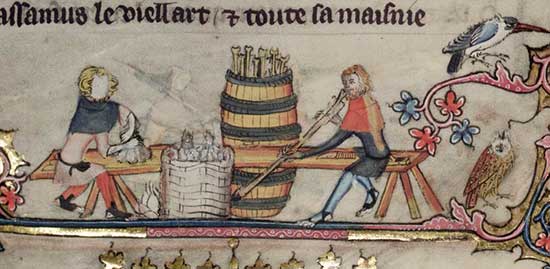 assamus le vieill art ⁊ toute sa maisnie